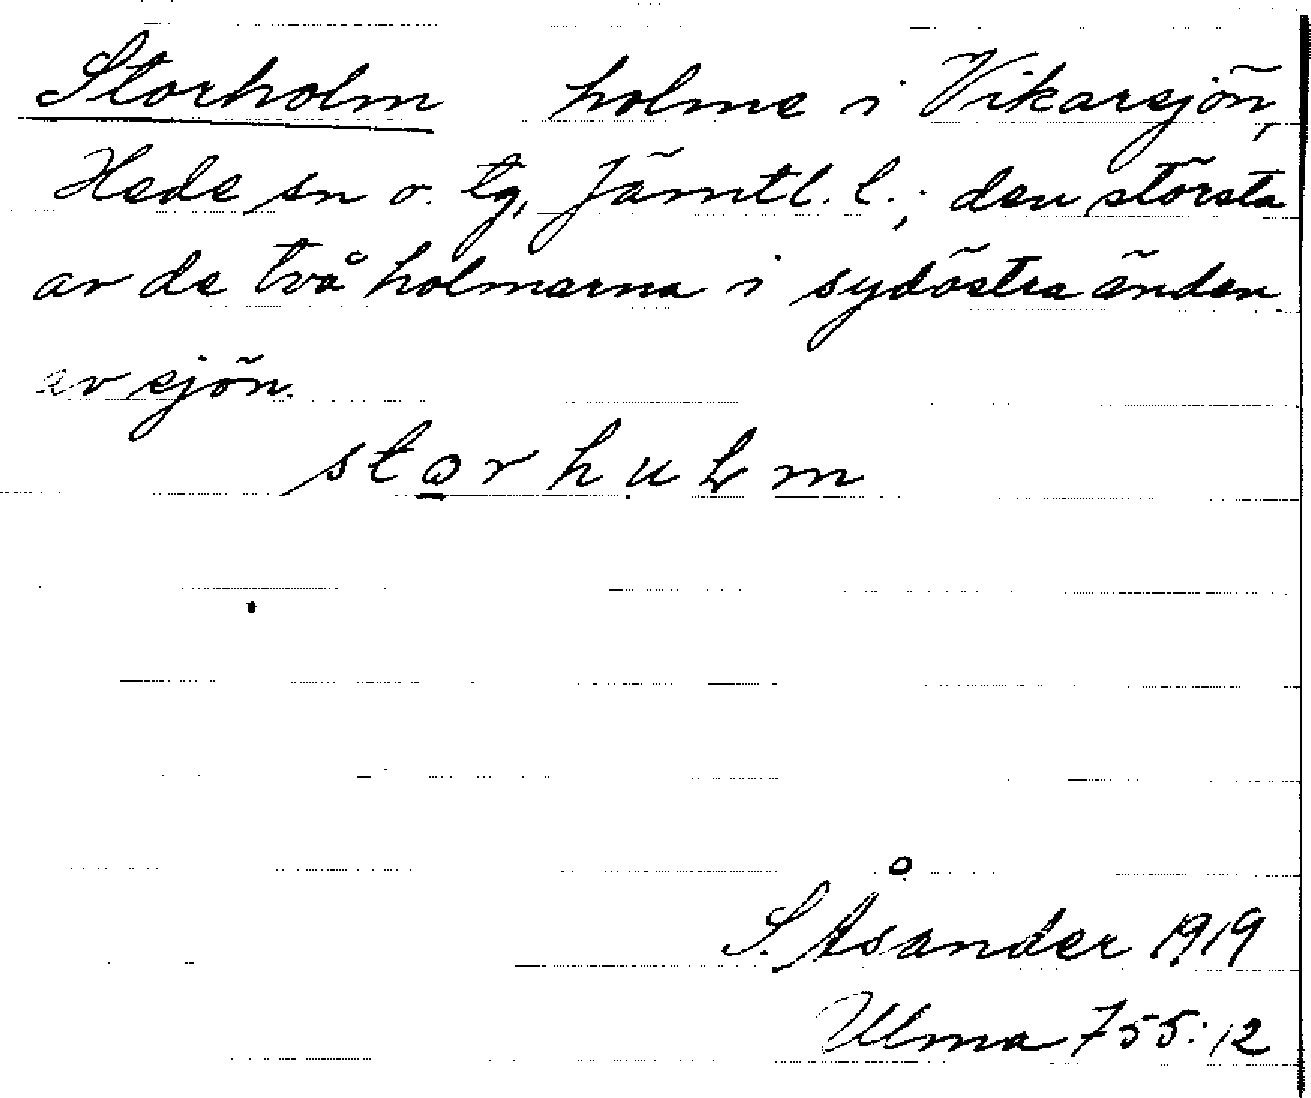 Storholm holme i Vikarsjön,
Hede sn o. tg, Jämtl. l.; den största
av de två holmarna i sydöstra änden
av sjön.
storhuLm
S. Åsander 1919
Ulma 755:12